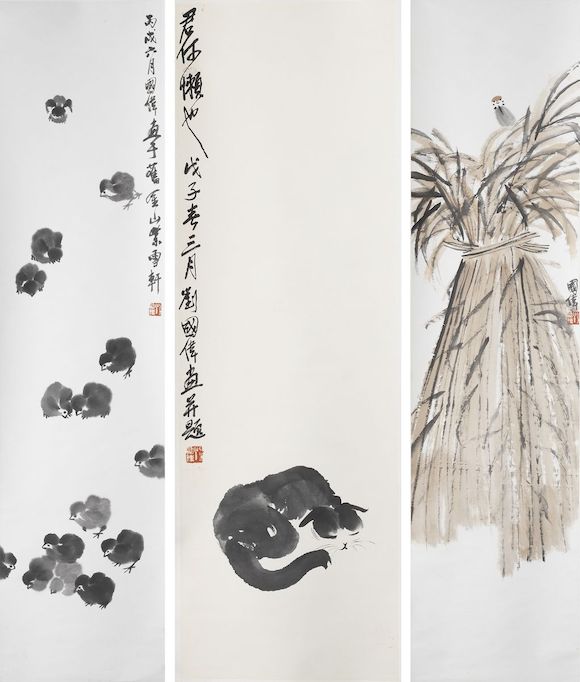 丙戌六月國偉畫于舊金山紫雪軒
君何懶也 戊子春三月劉國偉畫并題
國偉